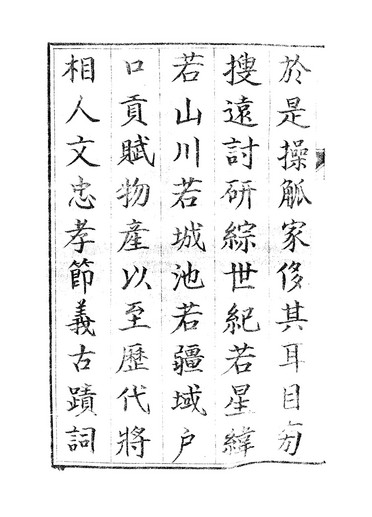 於是操觚家侈其耳目旁
搜遠討研綜世紀若星緯
若山川若城池若疆域户
口貢賦物產以至歷代將
相人文忠孝節義古蹟詞